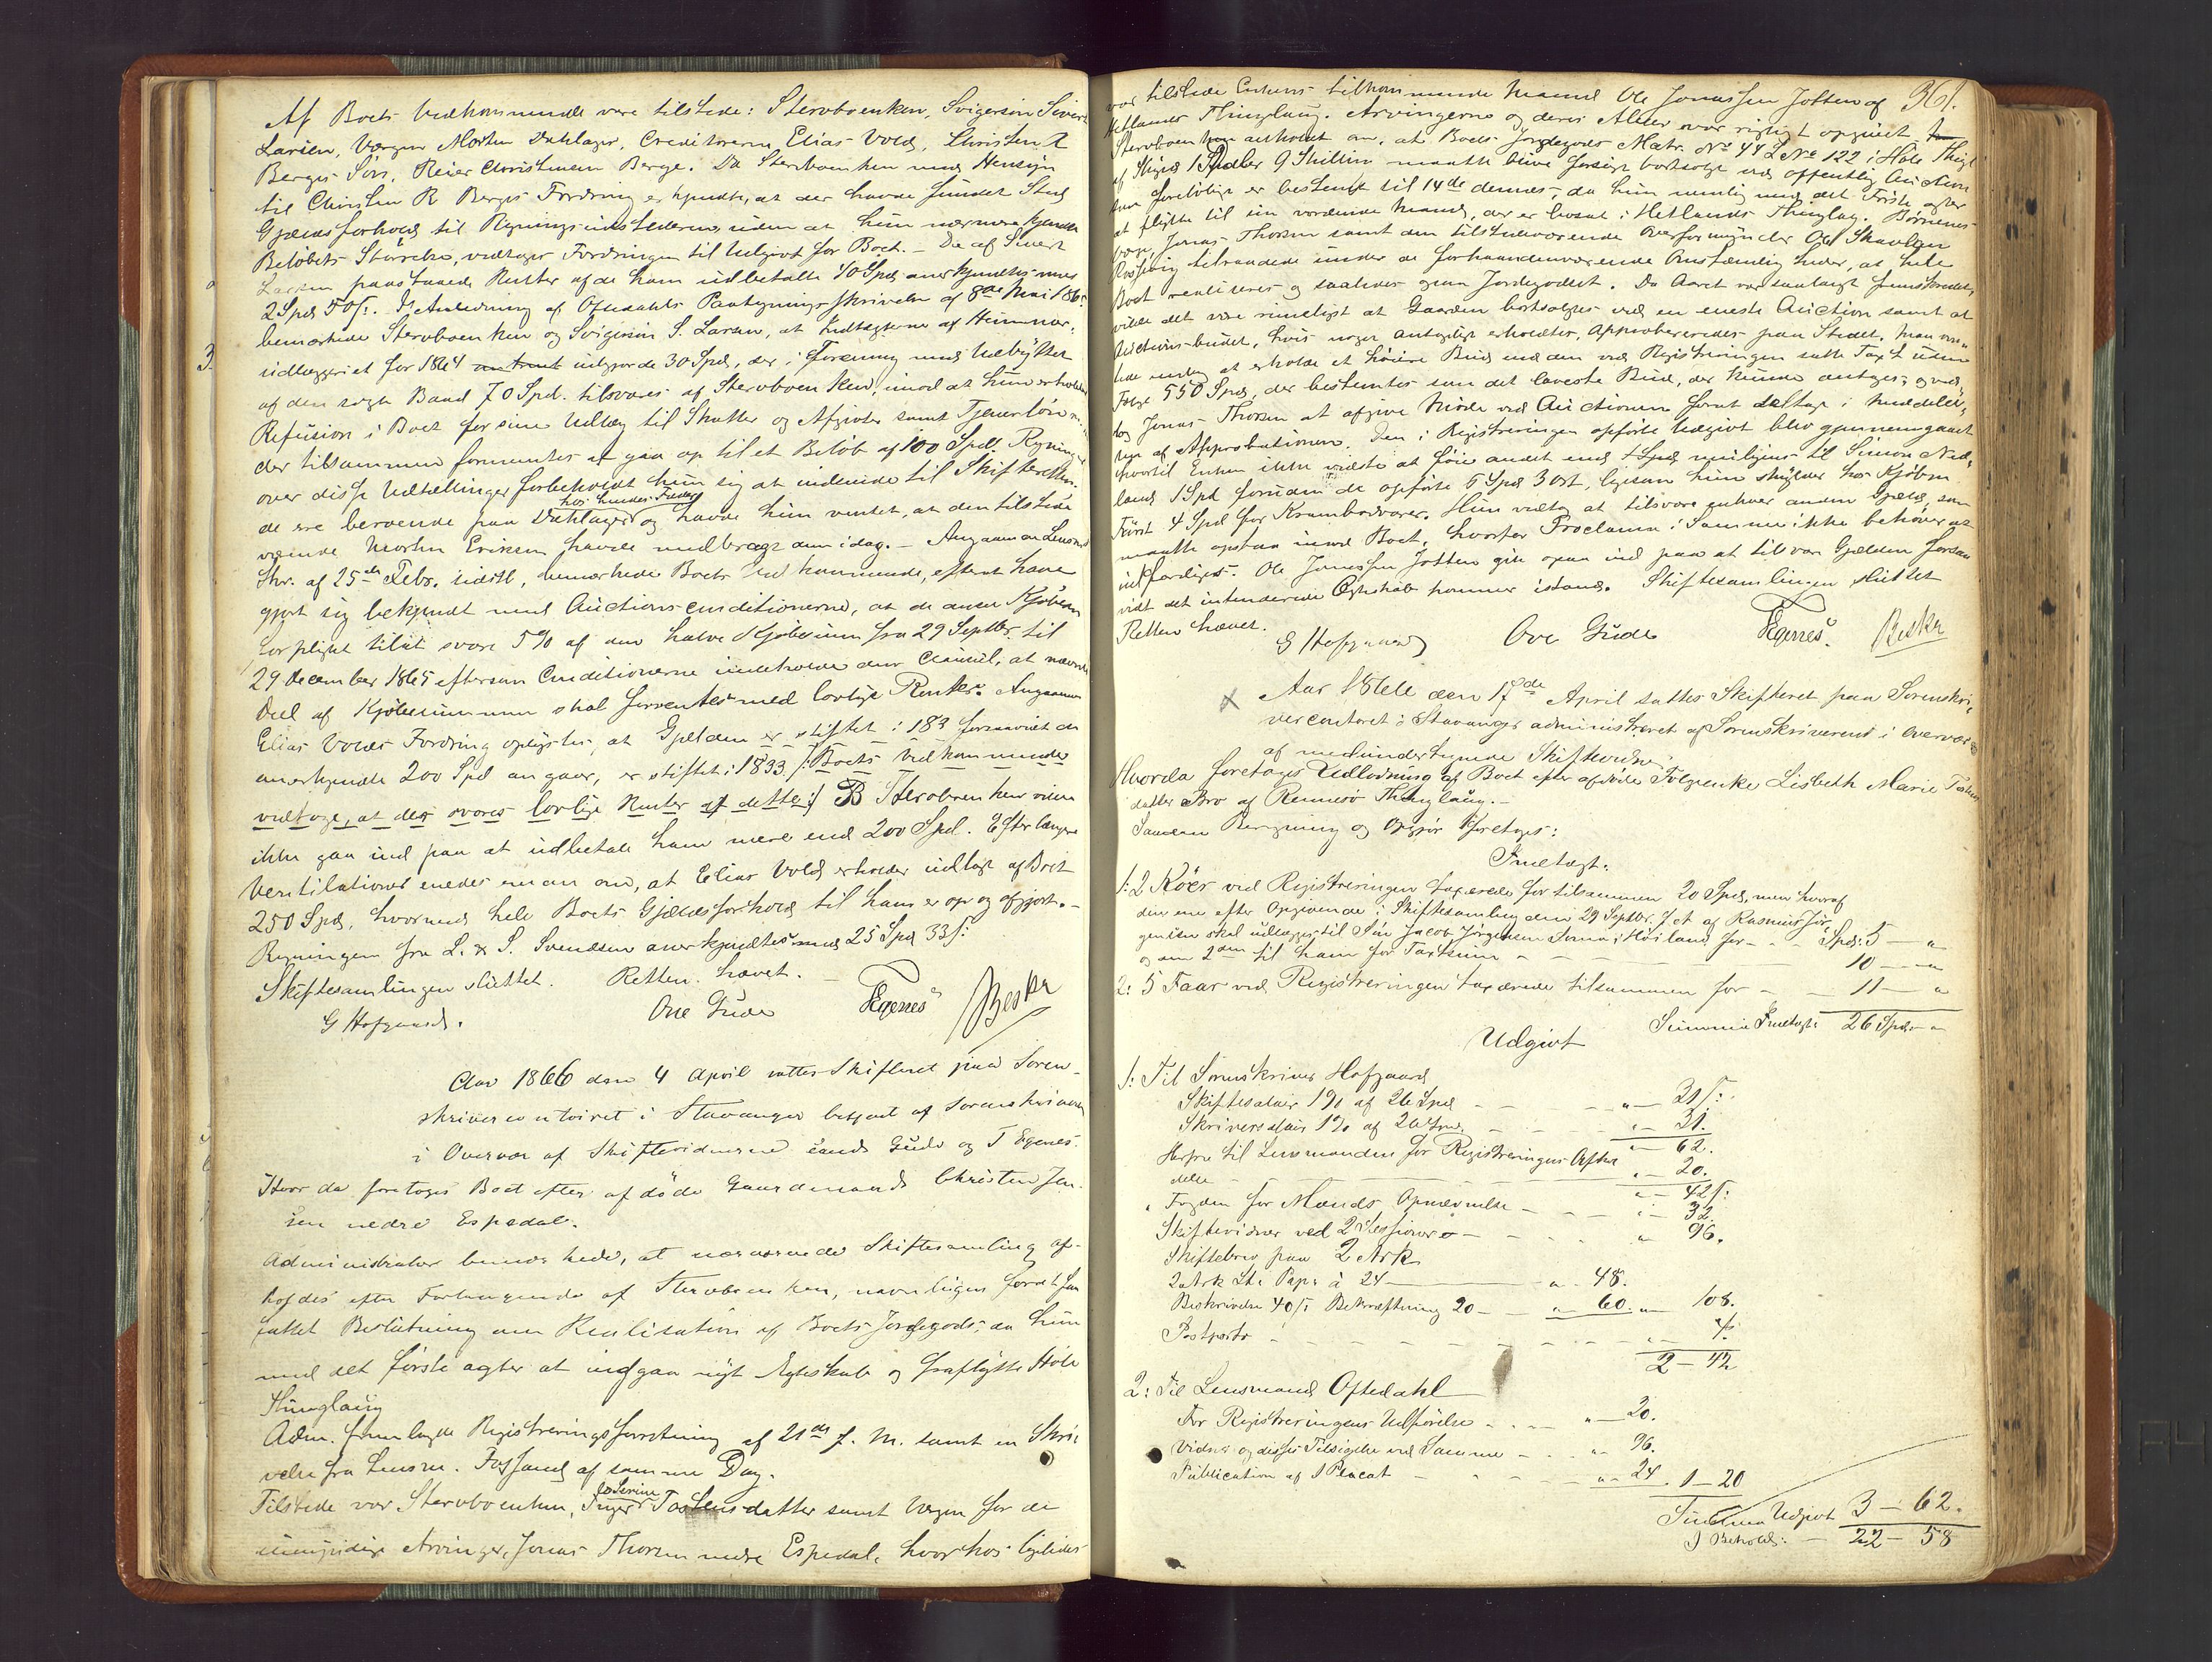 Af Boets Vedkommende vare tilstede: Stervboenken, Svigersøn Sivert
Larsen, Værgen Morten Dahlager, Creditorerne Elias Vold, Christen R
Berges Søn, Reier Christensen Berge. Da Stervboenken med Hensyn
til Christen R Berges Fordring er kjendte, at der havde fundet Sted
Gjældsforhold til Rygningsinstederne, uden at hun nærmere kjendte
Beløbets Størrelse, vedtoges Fordringen til Udgivt for Boet. – De af Sivert
Larsen paastaaede Renter af de ham udbetalte 40 Spd anerkjendtes med
2 Spd 50 s:. I Anledning af Oftedahls Pantegnings skrivelse af 8de Mai 1865
bemærkede Stervboenken og Svigersøn S. Larsen, at Indtægterne af
udlæggeriet for 1864 udgjorde 30 Spd, der i Forening med Udbyttet
af den solgte Baad 70 Spd. tilsvares af Stervboenken, imod at hun erholder
Refusion i Boet for sine Udlæg til Skatter og Afgivter samt Tjenerløn
der tilsammen formentes at gaa op til et Beløb af 100 Spd. Regninger
over disse Udtællinger forbeholdt hun sig at indsende til Skifteretten.
hos hendes Fader
de ere beroende paa Dahlager og havde hun ventet, at den tilstede
værende Morten Eriksen havde medbragt dem idag. – Angaaende Lensmd
Skr. af 25de Febr. sidstl, bemærkede Boets Vedkommende, efterat have
gjort sig bekjendt med Auctionsconditionerne, at de anser Kjøberen
forpligtet til at svare 5% af den halve Kjøbesum fra 29 Septbr. til
29 December 1865 eftersom Conditionerne indeholde den Clausul, at nævnte
Deel af Kjøbesummen skal forrentes med lovlige Renter. Angaaende
Elias Volds Fordring oplystes, at Gjælden er stiftet i 183 forsaavidt de
anerkjendte 200 Spd angaar, er stiftet i 1833 /: Boets Vedkommende
vedtoge, at der svares lovlige Renter af dette :/ Stervboenken vilde
ikke gaa ind paa at udbetale ham mere end 200 Spd. Efter længere
Ventilationer enedes man om, at Elias Vold erholder udlagt af Boet
250 Spd, hvormed hele Boets Gjældsforhold til ham er op og afgjort. –
Regningen fra L. & S. Svendsen anerkjendtes med 25 Spd 33 s:
Skiftesamlingen sluttet. Retten hævet. –
G Hofgaard. Ove Gude TEgenes Beskr
Aar 1866 den 4 April sattes Skifteret paa Soren-
skrivercontoiret i Stavanger betjent af Sorenskriveren
i Overvær af Skiftevidnerne Gude og T Egenes.
Hvor da foretoges Boet efter afdøde Gaardmand Christen Jen-
sen nedre Espedal.
Administrator bemærkede, at nærværende Skiftesamling af-
holdes efter Forlangende af Stervboenken, navnligen for at faa
fattet Beslutning om Realisation af Boets Jordegods, da hun
med det første agter at indgaa nyt Ægteskab og fraflytte Høle
Thinglaug
Adm. fremlagde Registreringsforretning af 21de f. M. samt en Skri-
velse fra Lensm. Fossand af samme Dag.
Serine
Tilstede var Stervboenken, Inger Tostensdatter samt Værgen for de
umyndige Arvinger, Jonas Thorsen nedre Espedal, hvorhos ligeledes
361.
var tilstede Enkens tilkommende Mand Ole Jonassen Jotten af
Hetlands Thinglaug. Arvingerne og deres Alder var rigtigt opgivet
Stervboenken anholdt om, at Boets Jordegods Matr. No 44 L No 122 i Høle Thigl
af Skyld 1 Daler 9 Skilling maatte blive forsøgt bortsolgt ved offentlig Auction
som foreløbige er bestemt til 14de dennes, da hun nemlig med det Første agter
at flytte til sin vordende Mand, der er bosat i Hetlands Thinglag. Børnenes
Værge, Jonas Thorsen samt den tilstedeværende Overformynder Ole Skavlen
tilraadede under de forhaandenværende Omstændigheder, at hele
Boet realiseres og saaledes ogsaa Jordegodset. Da Aaret var saalangt fremskredet,
vilde det være rimeligst at Gaarden bortsolgtes ved en eneste Auction samt at
Auctions-budet, hvis noget antageligt erholdtes, approberedes paa Stedet. Man
at erholde et høiere Bud end den ved Registreringen satte Taxt
550 Spd, der bestemtes som det laveste Bud, der kunne antages; og ved-
tog Jonas Thorsen at afgive Møde ved Auctionen forat deltage i Meddelel-
sen af Approbationen. Den i Registreringen opførte Udgivt blev gjennemgaaet
hvortil Enken ikke vidste at føie andet end Spd nemligen til Simon Ned-
land 1 Spd foruden de opførte 6 Spd 3 ort, ligesom hun skylder hos Kjøbm
4 Spd for Krambodvarer. Hun vedtog at tilsvare enhver anden Gjæld, som
maatte opstaa imod Boet, hvorfor Proclama i Samme ikke behøver at
udfærdiges. Ole Jonassen Jotten gik ogsaa ind paa at tilsvare Gjælden forsaa
vidt det intenderede Ægteskab kommer istand. Skiftesamlingen sluttet
Retten hævet.
G Hofgaard Ove Gude TEgenes. Beskr
x Aar 1866 den 17de April sattes Skifteret paa Sorenskri-
vercontoret i Stavanger administreret af Sorenskriveren i Overvær
af medundertegnede Skiftevidner.
Hvorda foretoges Udlodning af Boet efter afdøde Følgeenke Lisbeth Marie
datter Bro af Rennesø Thinglaug. –
Saadan Beregning og Opgjør foretoges:
Indtægt.
1: 2 Køer ved Registreringen taxerede for tilsammen 20 Spd, men hvoraf
den ene efter Opgivende i Skiftesamling den 29 Septbr. f. A. af Rasmus Jør-
gensen skal udlægges til Søn Jacob Jørgensen Soma i Høiland for – Spd: 5 – "
og den 2den til ham for Taxtsum – 10 – "
2: 5 Faar ved Registreringen taxerede tilsammen for – 11 – "
Summa Indtægt 26 Spd – "
Udgivt
1: Til Sorenskriver Hofgaard
Skiftesalair 1% af 26 Spd – " – 31 s:
Skriversalair 1% af 26 Spd. – " – 31.
" – 62.
Herfra til Lensmanden for Registreringens Afhol
delse – " – 20.
" – 42 s:
" Fogden for Mænds Opnævnelse – " – 32.
Skiftevidner ved 2 Sessioner – " 96.
Skiftebrev paa 2 Ark
2 Ark St. Papr à 24 – " – 48.
Beskrivelse 40 s: Bekræftning 20 – " – 60. " – 108.
Postporto – " – 4.
2 – 42
2: Til Lensmand Oftedahl
For Registreringens Udførelse – " – 20.
Vidner og disses Tilsigelse ved Samme – " – 96.
Publication af 1 Placat – " – 24. 1 – 20
Summa Udgivt 3 – 62.
I Behold: – 22 – 58